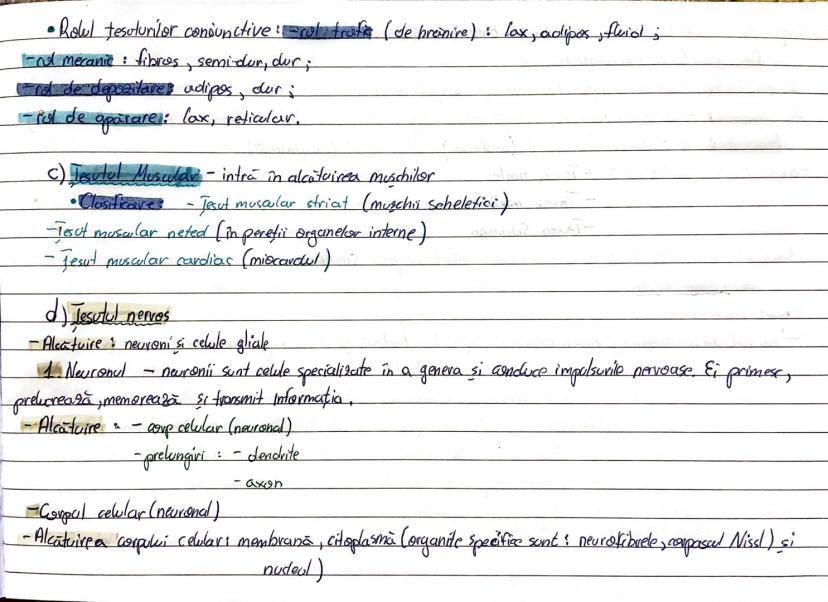 • Rolul țesuturilor conjunctive: - rol trofic (de hrănire) : lax, adipos, fluid ;
- rol mecanic : fibros, semi-dur, dur ;
- rol de depozitare: adipos, dur ;
- rol de apărare: lax, reticular.
c) Țesutul Muscular - intră în alcătuirea mușchilor
• Clasificare: - Țesut muscular striat (mușchii scheletici)
- Țesut muscular neted (în pereții organelor interne)
- Țesut muscular cardiac (miocardul)
d) Țesutul nervos
- Alcătuire : neuroni și celule gliale
1. Neuronul - neuronii sunt celule specializate în a genera și conduce impulsurile nervoase. Ei primesc,
prelucrează, memorează și transmit informația.
- Alcătuire : - corp celular (neuronal)
- prelungiri : - dendrite
- axon
- Corpul celular (neuronal)
- Alcătuirea corpului celular: membrană, citoplasmă (organite specifice sunt : neurofibrele, corpascul Nissl) și
nucleul)